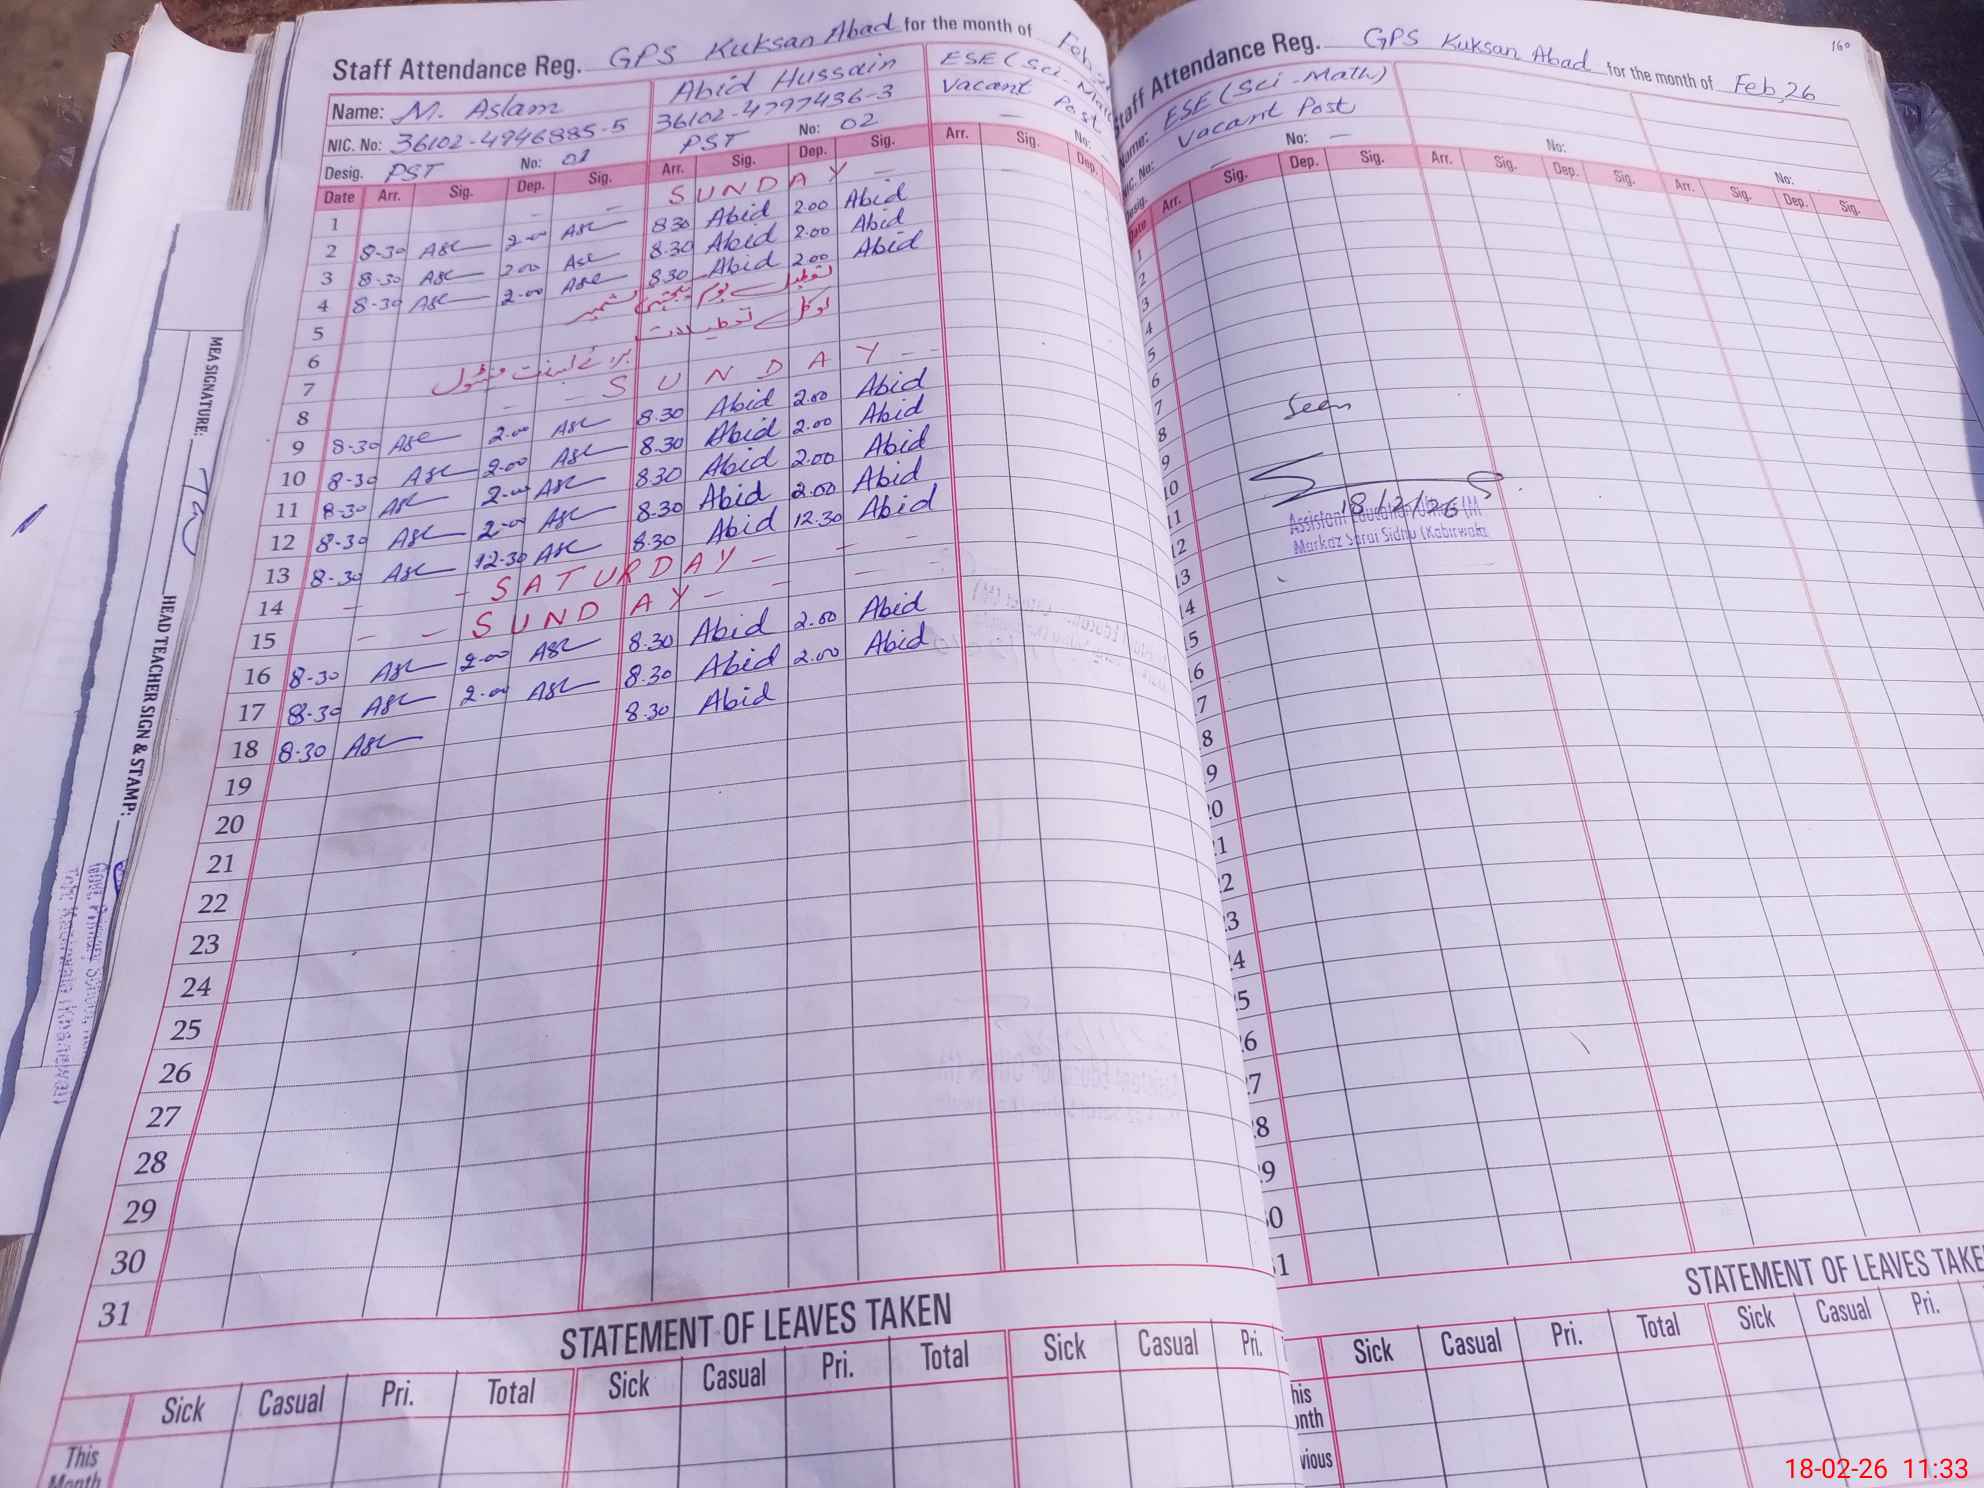 Staff Attendance Reg. GPS Kuksan Abad for the month of Feb,
Name: M. Aslam Abid Hussain ESE (Sci-Mat
NIC. No: 36102-4946885-5 36102-4797436-3 Vacant Post
Desig. PST No: 01 PST No: 02 — No:
Date Arr. Sig. Dep. Sig. Arr. Sig. Dep. Sig. Arr. Sig. Dep.
1 - - S U N D A Y -
2 8-30 Asl 2-00 Asl 8.30 Abid 2.00 Abid
3 8-30 Asl 2.00 Asl 8.30 Abid 2.00 Abid
4 8-30 Asl 2-00 Asl 8.30 Abid 2.00 Abid
5 تعطیل بسلسلہ یوم یکجہتی کشمیر
6 لوکل تعطیلات
7 برائے بسنت فیسٹول
8 - - - S U N D A Y - -
9 8-30 Asl 2-00 Asl 8.30 Abid 2.00 Abid
10 8-30 Asl 2-00 Asl 8.30 Abid 2.00 Abid
11 8-30 Asl 2-00 Asl 8.30 Abid 2.00 Abid
12 8-30 Asl 2-00 Asl 8.30 Abid 2.00 Abid
13 8-30 Asl 12-30 Asl 8.30 Abid 12.30 Abid
14 - - S A T U R D A Y - - -
15 - - S U N D A Y - - - -
16 8-30 Asl 2-00 Asl 8.30 Abid 2.00 Abid
17 8-30 Asl 2-00 Asl 8.30 Abid 2.00 Abid
18 8-30 Asl 8.30 Abid
19
20
21
22
23
24
25
26
27
28
29
30
31
STATEMENT OF LEAVES TAKEN
Sick Casual Pri. Total Sick Casual Pri. Total Sick Casual Pri.
This
Month
160
Staff Attendance Reg. GPS Kuksan Abad for the month of Feb,26
Name: ESE (Sci-Math)
NIC. No: Vacant Post
Desig. — No: — No: No:
Date Arr. Sig. Dep. Sig. Arr. Sig. Dep. Sig. Arr. Sig. Dep. Sig.
1
2
3
4
5
6
7
8
9
10
11
12
13
14
15
16
17
18
19
20
21
22
23
24
25
26
27
28
29
30
31
Seen
18/2/26
Assistant Education
Markaz Sarai Sidhu (Kabirwala
STATEMENT OF LEAVES TAKE
Sick Casual Pri. Total Sick Casual Pri.
This
Month
vious
MEA SIGNATURE:
HEAD TEACHER SIGN & STAMP:
Govt. Primary School
18-02-26 11:33